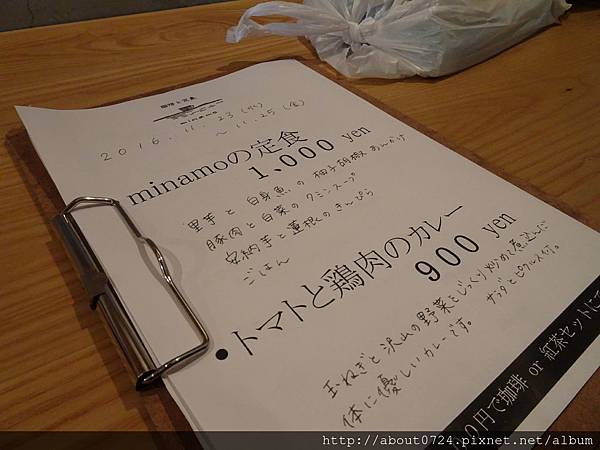 珈琲と定食
minamo
2016.11.23(水)
～11.25(金)
minamoの定食
1,000 yen
里芋と白身魚の柚子胡椒あんかけ
豚肉と白菜のクミンスープ
安納芋と蓮根のきんぴら
ごはん
・トマトと鶏肉のカレー
900 yen
玉ねぎと沢山の野菜をじっくり炒めて煮込んだ
体に優しいカレーです。 サラダとピクルス付。
00円で珈琲 or 紅茶セットにで
http://about0724.pixnet.net/album